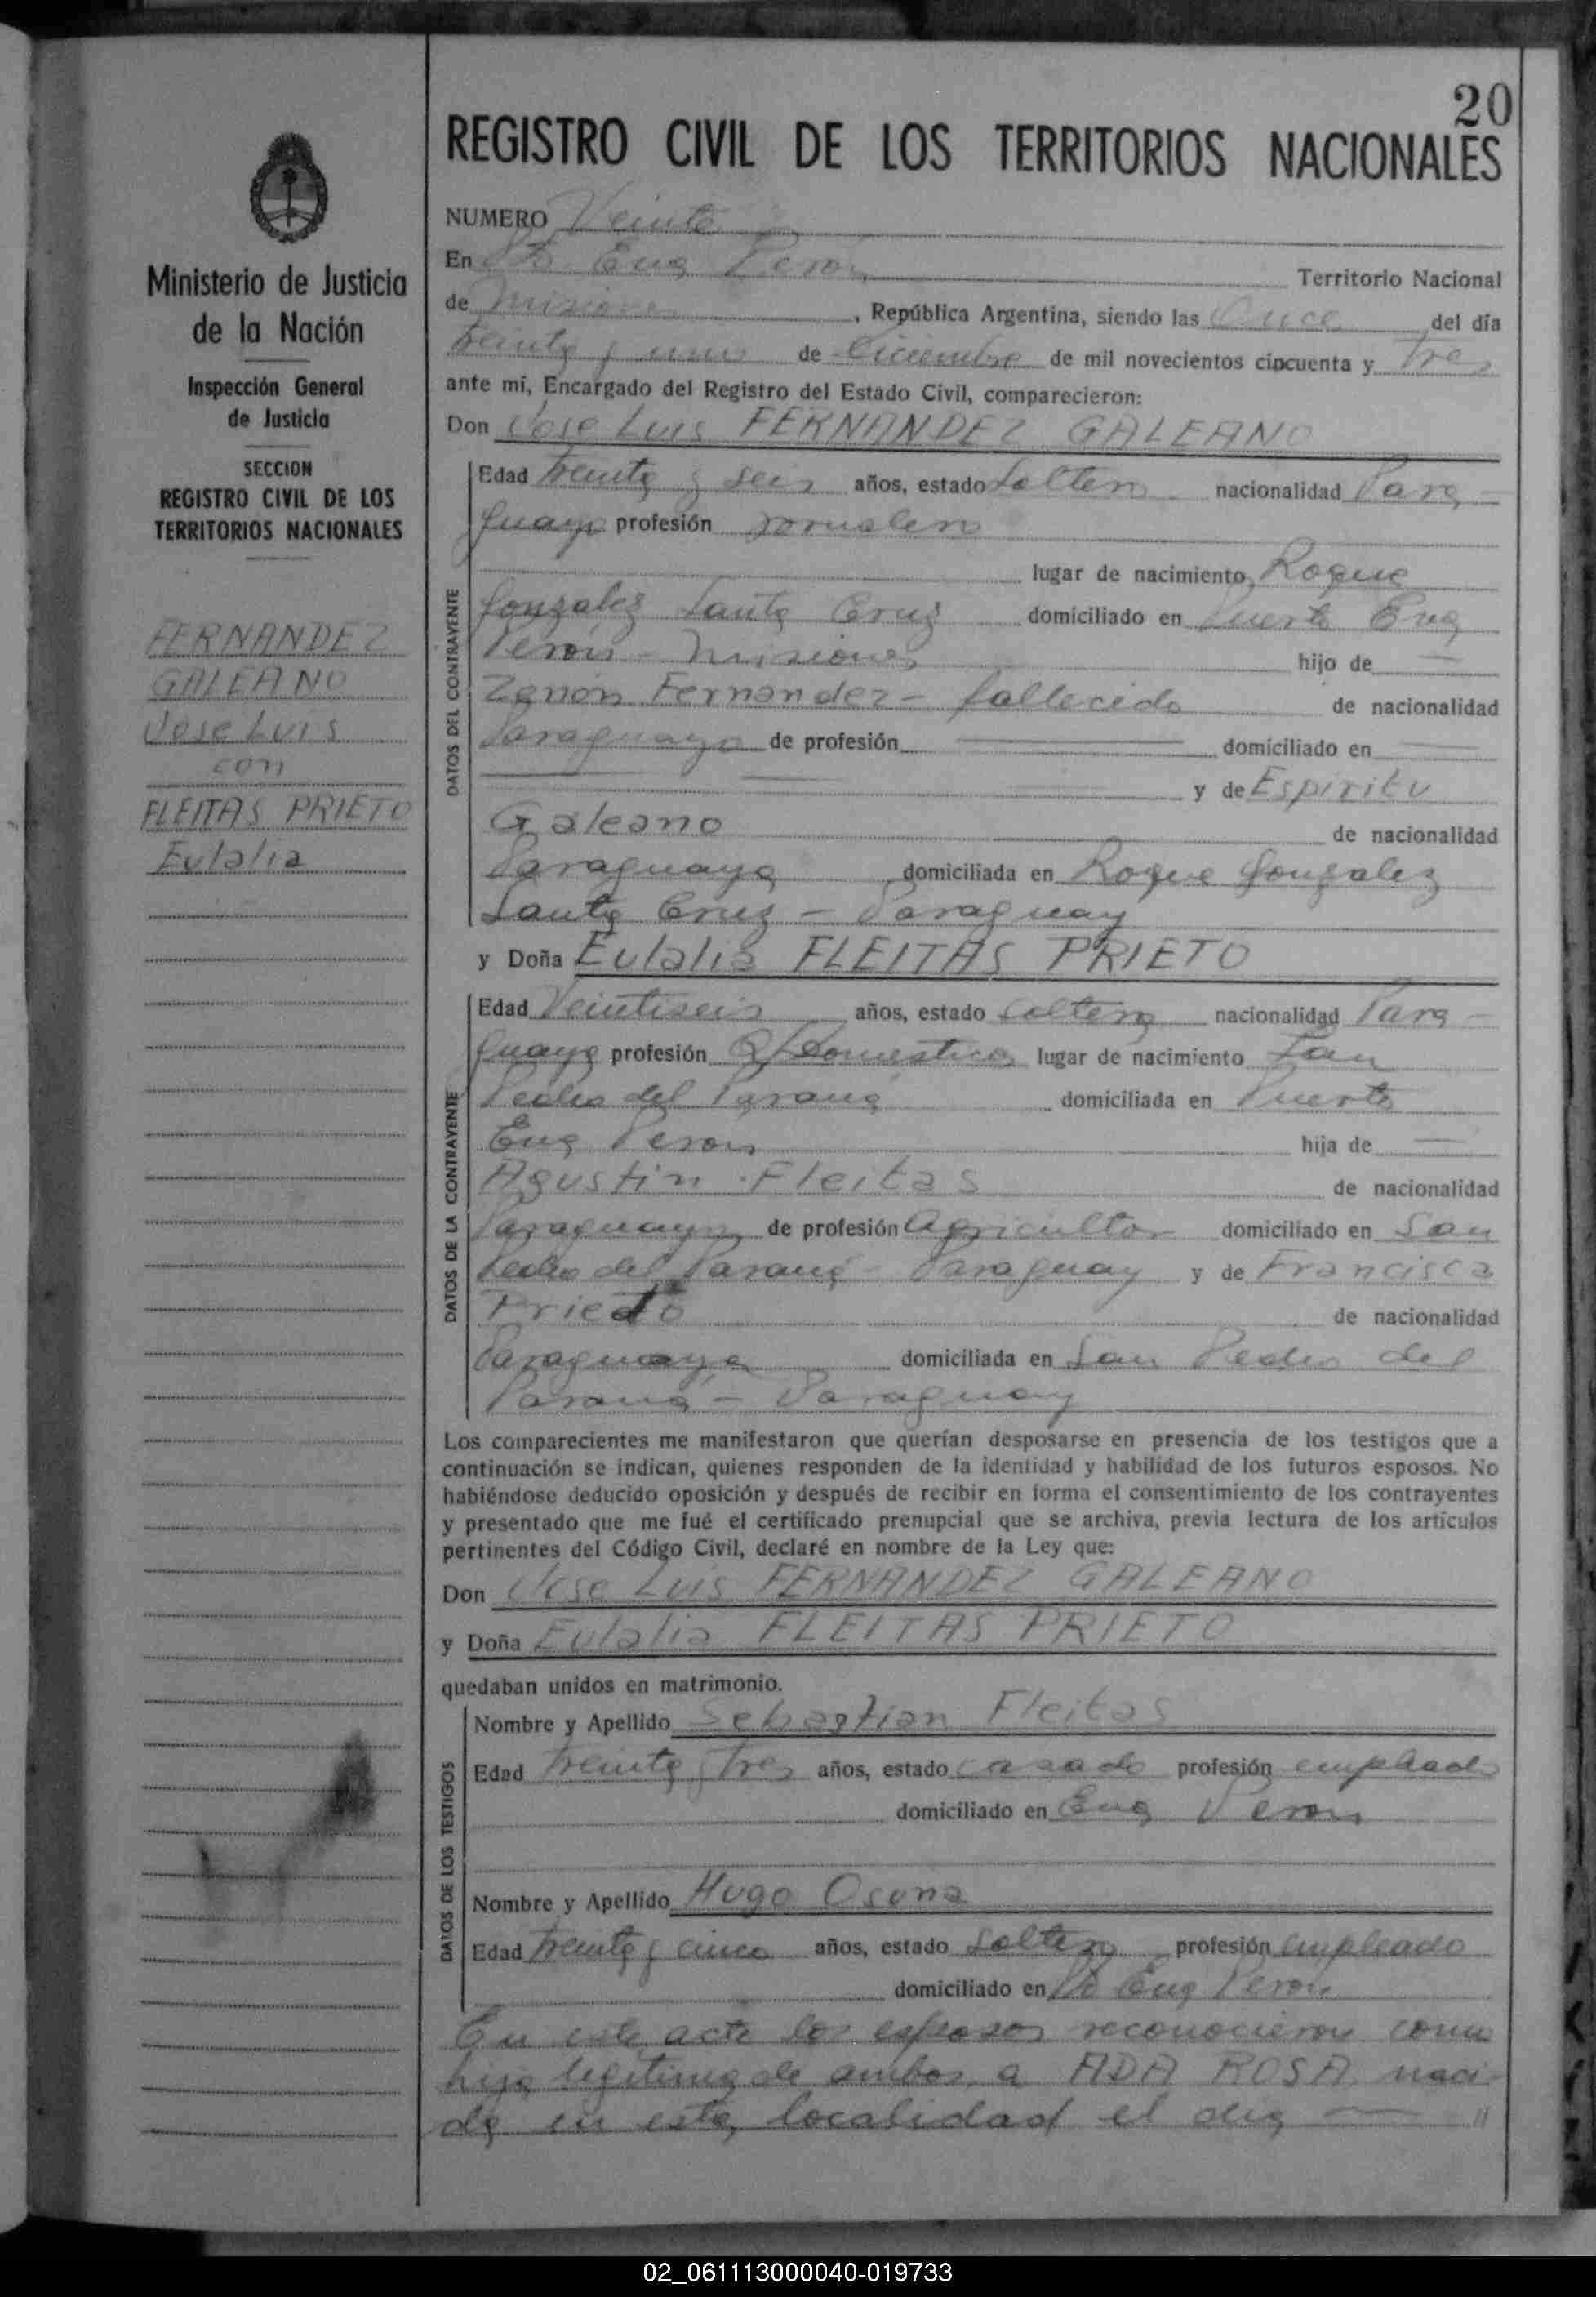 20
REGISTRO CIVIL DE LOS TERRITORIOS NACIONALES
Ministerio de Justicia
de la Nación
Inspección General
de Justicia
SECCION
REGISTRO CIVIL DE LOS
TERRITORIOS NACIONALES
FERNANDEZ
GALEANO
Jose Luis
con
FLEITAS PRIETO
Eulalia
NUMERO Veinte
En Pto Eva Peron Territorio Nacional
de Misiones, República Argentina, siendo las Once del día
treinta y uno de Diciembre de mil novecientos cincuenta y Tres
ante mí, Encargado del Registro del Estado Civil, comparecieron:
Don Jose Luis FERNANDEZ GALEANO
DATOS DEL CONTRAYENTE
Edad treinta y seis años, estado soltero nacionalidad Para-
guayo profesión jornalero
lugar de nacimiento Roque
Gonzalez Santa Cruz domiciliado en Puerto Eva
Perón - Misiones hijo de —
Zenón Fernandez - fallecido de nacionalidad
Paraguayo de profesión — domiciliado en —
— y de Espiritu
Galeano de nacionalidad
Paraguaya domiciliada en Roque Gonzalez
Santa Cruz - Paraguay
y Doña Eulalia FLEITAS PRIETO
DATOS DE LA CONTRAYENTE
Edad Veintiseis años, estado soltera nacionalidad Para-
guaya profesión Q/Domesticos lugar de nacimiento San
Pedro del Paraná domiciliada en Puerto
Eva Peron hija de —
Agustin Fleitas de nacionalidad
Paraguayo de profesión Agricultor domiciliado en San
Pedro del Paraná - Paraguay y de Francisca
Prieto de nacionalidad
Paraguaya domiciliada en San Pedro del
Paraná - Paraguay
Los comparecientes me manifestaron que querían desposarse en presencia de los testigos que a
continuación se indican, quienes responden de la identidad y habilidad de los futuros esposos. No
habiéndose deducido oposición y después de recibir en forma el consentimiento de los contrayentes
y presentado que me fué el certificado prenupcial que se archiva, previa lectura de los artículos
pertinentes del Código Civil, declaré en nombre de la Ley que:
Don Jose Luis FERNANDEZ GALEANO
y Doña Eulalia FLEITAS PRIETO
quedaban unidos en matrimonio.
DATOS DE LOS TESTIGOS
Nombre y Apellido Sebastian Fleitas
Edad treinta y tres años, estado casado profesión empleado
domiciliado en Eva Peron
Nombre y Apellido Hugo Osuna
Edad treinta y cinco años, estado soltero profesión empleado
domiciliado en Pto Eva Peron
En este acto los esposos reconocieron como
hija legitima de ambos a ADA ROSA naci-
da en esta localidad el dia — //
02_061113000040-019733